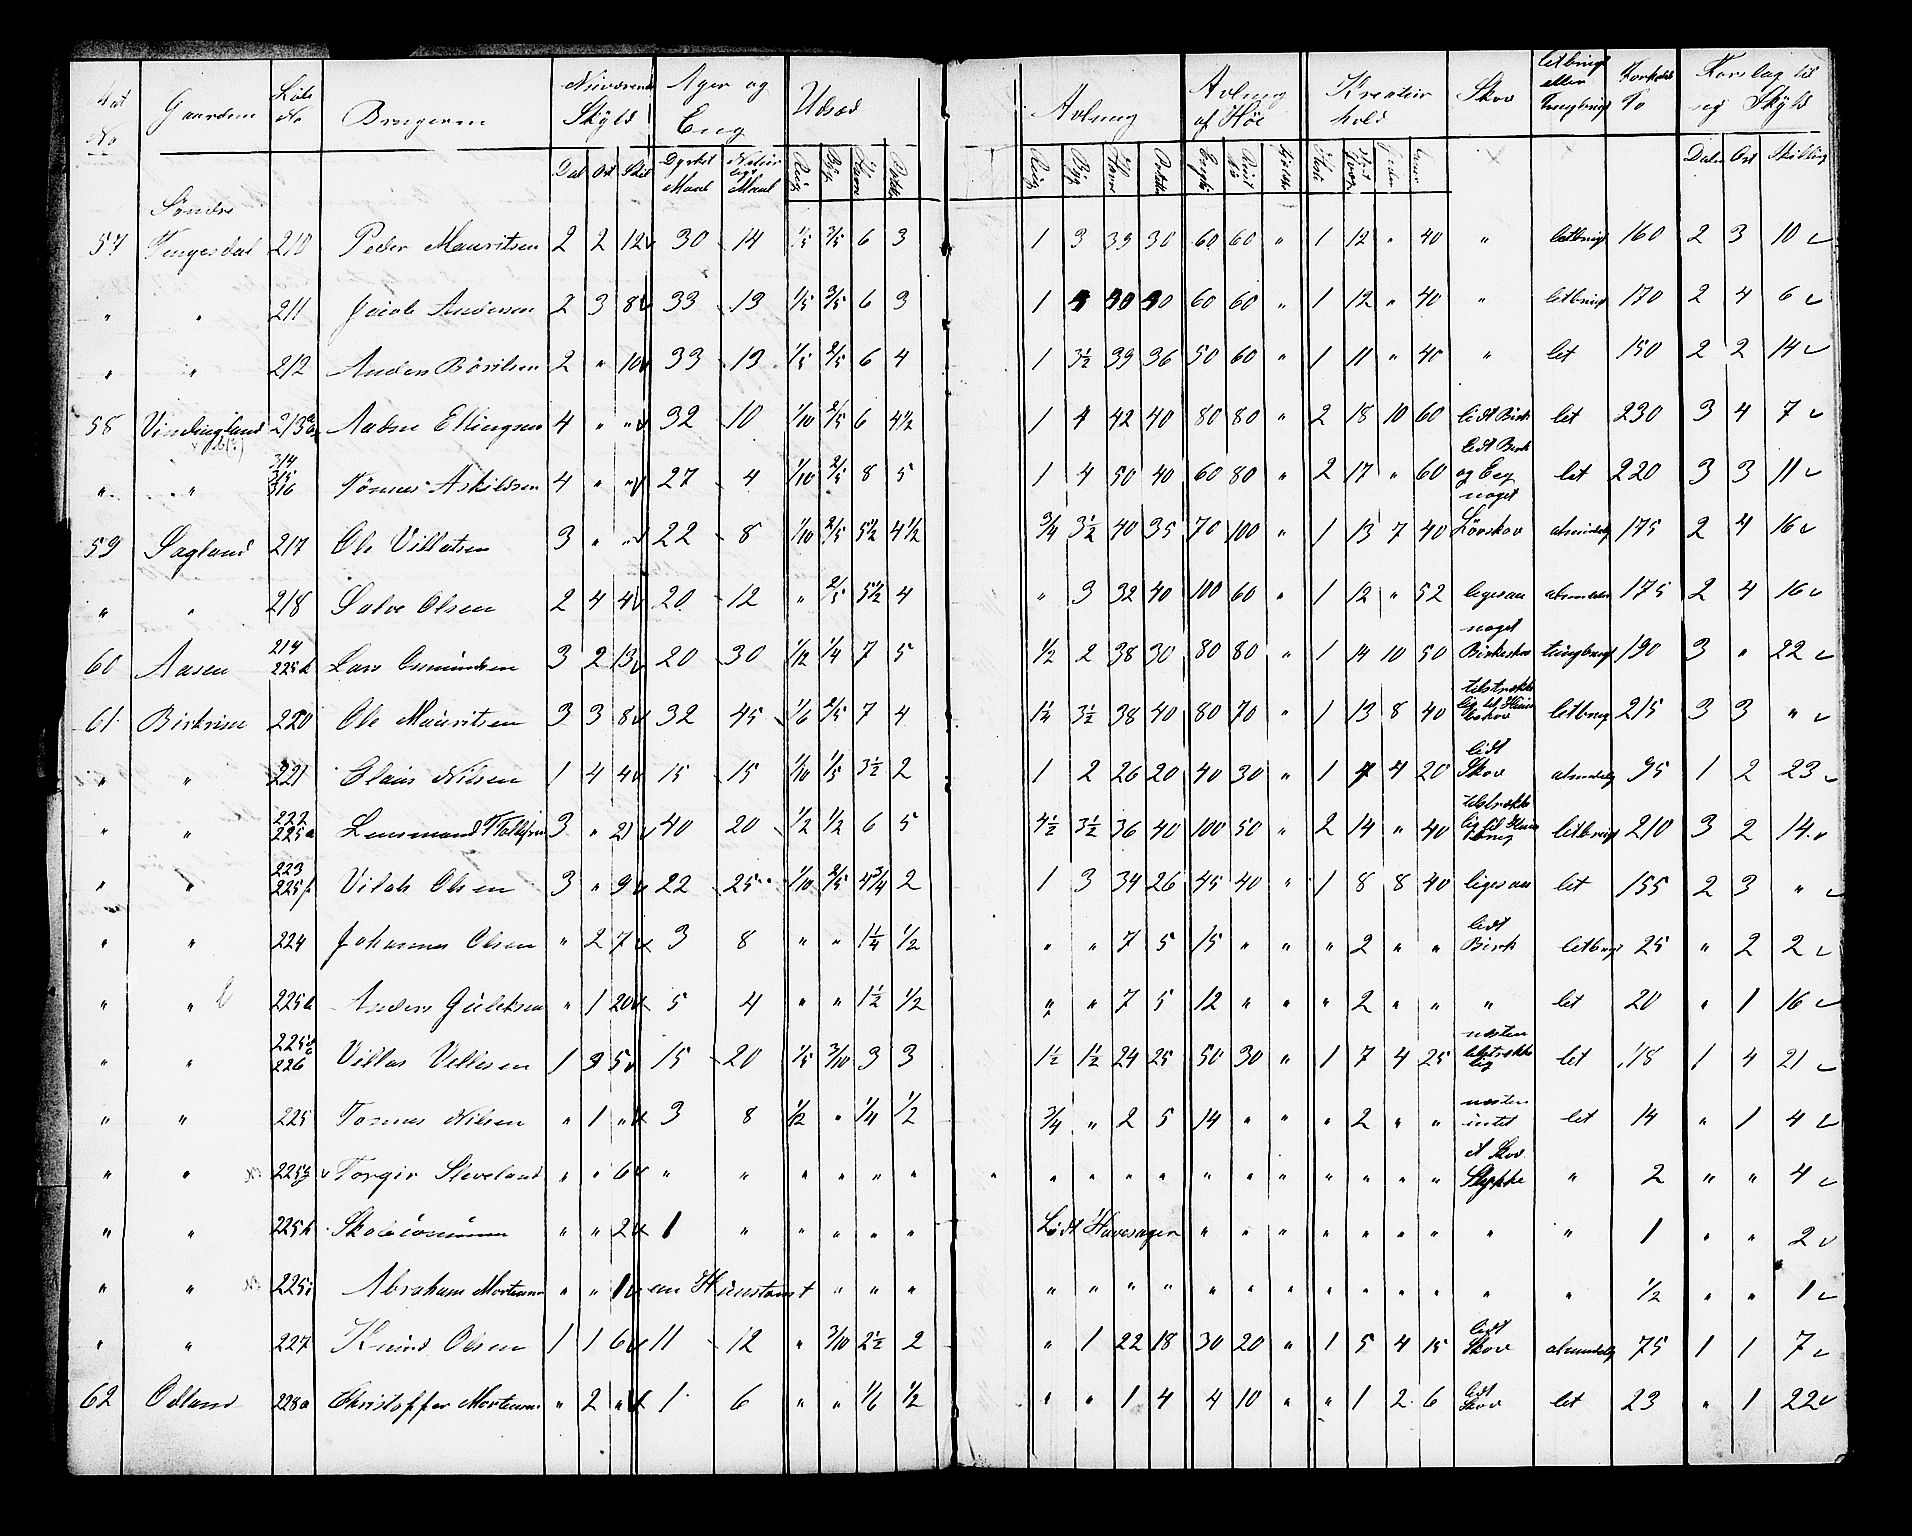 Mat No | Gaarden | Løbe No | Brugeren | Nuværende Skyld | Ager og Eng | Udsæd | Avlning | Avlning af Høe | Kreatur hold | Skov | letbrugt eller Tungbrugt | Forholds | Forslag til ny Skyld
Dal Ort Skil | Dyrket Maal | Maal | Rug Byg Havre Potet | Rug Byg Havre | Heste | Daler Ort Skilling
57 Søndre Tengesdal 210 Peder Mauritsen 2 2 12 30 14 1/5 3/5 6 3 1 3 39 30 60 60 " 1 12 " 40 " letbrugt 160 2 3 10
" " 211 Jacob Andersen 2 3 8 33 13 1/5 3/5 6 3 1 3 30 30 60 60 " 1 12 " 40 " letbrugt 170 2 4 6
" " 212 Anders Börilsen 2 " 10 33 13 1/5 2/5 6 4 1 3½ 39 36 50 60 " 1 11 " 40 " let 150 2 2 14
58 Vindingland 213 Aadne Ellingsen 4 " " 32 10 1/10 2/5 6 4½ 1 4 42 40 80 80 " 2 18 10 60 lidt Birk let 230 3 4 7
" " 314 315 316 Tönnes Askildsen 4 " " 27 4 1/10 2/5 8 5 1 4 50 40 60 80 " 2 17 " 60 lidt Birk og Eeg let 220 3 3 11
59 Sagland 217 Ole Villatsen 3 " " 22 8 1/10 2/5 5½ 4½ 3/4 3½ 40 35 70 100 " 1 13 7 40 noget Lövskov almindelig 175 2 4 16
" " 218 Salve Olsen 2 4 4 20 12 " 2/5 5½ 4 " 3 32 40 100 60 " 1 12 " 52 ligesaa almindelig 175 2 4 16
60 Aasen 214 225k Lars Osmundsen 3 2 13 20 30 1/2 1/4 7 5 1/2 2 38 30 80 80 " 1 14 10 50 noget Birkeskov tungbrugt 190 3 " 22
61 Birkrem 220 Ole Mauritsen 3 3 8 32 45 1/6 2/5 7 4 1¼ 3½ 38 40 80 70 " 1 13 8 40 tilstrækkelig til Huusbehov letbrugt 215 3 3 "
" " 221 Claus Nilsen 1 4 4 15 15 1/10 1/5 3½ 2 1 2 26 20 40 30 " 1 7 4 20 lidt Skov almindelig 95 1 2 23
" " 222 225a Lensmand 3 " 21 40 20 1/2 1/2 6 5 4½ 3½ 36 40 100 50 " 2 14 " 40 tilstrækkelig til Huusbrug letbrugt 210 3 2 14
" " 223 225f Vilats Olsen 3 " 9 22 25 1/10 2/5 4¾ 2 1 3 34 26 45 40 " 1 8 8 40 ligesaa let 155 2 3 "
" " 224 Johannes Olsen " 2 7 3 8 " " 1¼ 1/2 " " 7 5 15 " " " 2 " " lidt Birk letbrugt 25 " 2 2
" " 225b Anders Gulaksen " 1 20 5 4 " " 1½ 1/2 " " 7 5 12 " " " 2 " " " let 20 " 1 16
" " 225 226 Villas Villesen 1 3 5 15 20 1/5 3/10 3 3 1½ 1½ 24 25 50 30 " 1 7 4 25 næsten tilstrækkelig let 118 1 4 21
" " 225 Tønnes Nilsen " 1 " 3 8 1/2 " 1/4 1/2 3/4 " 2 5 14 " " " 2 " " næsten intet let 14 " 1 4
" " 225g Torger Sleveland " " 6 " " " " " " " " " " " " " " " " " " et Skov Stykke " 2 " " 4
" " 225h " " 2 1 " " " " " Lidt Havesager " " " " " " " " " 1 " " 2
" " 225i Abraham Mortensen " " 1 en Huustomt " " " " " " " " " " " " " " " " 1/2 " " 1
" " 227 Knud Olsen 1 1 6 11 12 " 3/10 2½ 2 " 1 22 18 30 20 " 1 5 4 15 lidt Skov almindelig 75 1 1 7
62 Odland 228a Christoffer Mortensen " 2 " 1 6 " " 1/6 1/2 " " 1 4 4 10 " " 1 2 6 lidt Skov let 23 " 1 22